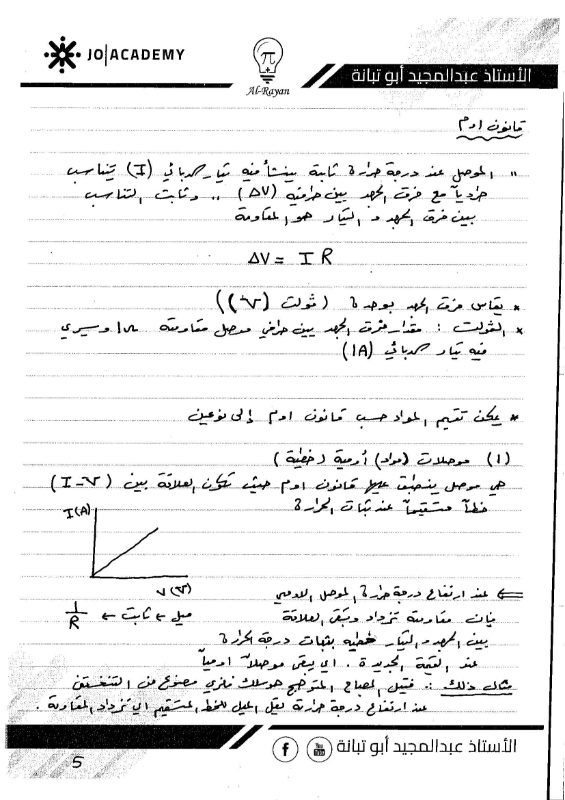 JO|ACADEMY
π
Al-Rayan
الأستاذ عبدالمجيد أبو تبانة
قانون اوم
" الموصل عند درجة حرارة ثابتة ينشأ فيه تيار كهربائي (I) يتناسب
طردياً مع فرق الجهد بين طرفيه (ΔV) ,, وثابت التناسب
بين فرق الجهد و التيار هو المقاومة
ΔV = I R
* يقاس فرق الجهد بوحدة (ڤولت (V))
* الڤولت : مقدار فرق الجهد بين طرفي موصل مقاومته 1Ω ويسري
فيه تيار كهربائي (1A)
* يمكن تقسيم المواد حسب قانون اوم إلى نوعين
(1) موصلات (مواد) أومية (خطية)
هي موصل ينطبق عليها قانون اوم حيث تكون العلاقة بين (I-V)
خطاً مستقيماً عند ثبات الحرارة
I(A)
V(V)
ميل ← ثابت ← 1/R
⇐ عند ارتفاع درجة حرارة الموصل الاومي
فإن مقاومته تزداد وتبقى العلاقة
بين الجهد و التيار خطيه بثبات درجة الحرارة
عند القيمة الجديدة . اي يبقى موصلاً اومياً
مثال ذلك : فتيل المصباح المتوهج هو سلك فلزي مصنوع من التنغستن
عند ارتفاع درجة حرارته يقل الميل للخط المستقيم اي تزداد المقاومة .
الأستاذ عبدالمجيد أبو تبانة
You Tube
f
5